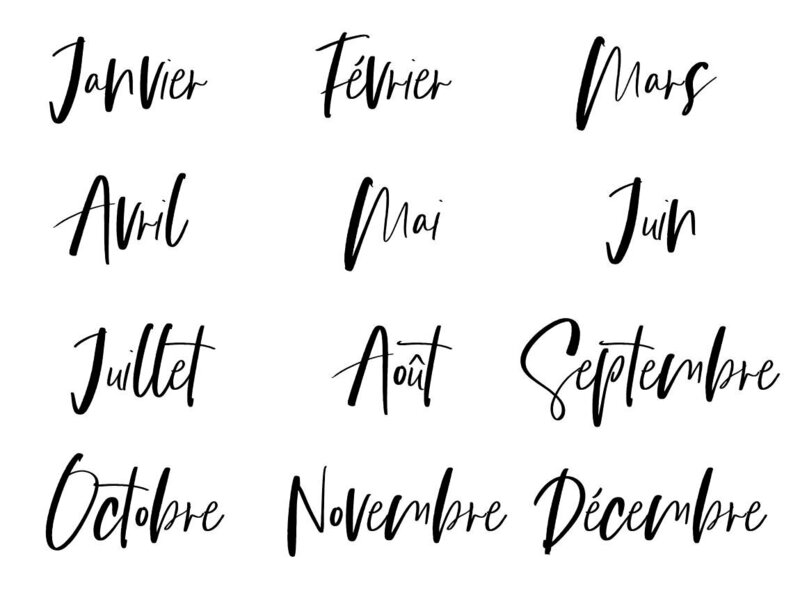 Janvier Février Mars
Avril Mai Juin
Juillet Août Septembre
Octobre Novembre Décembre